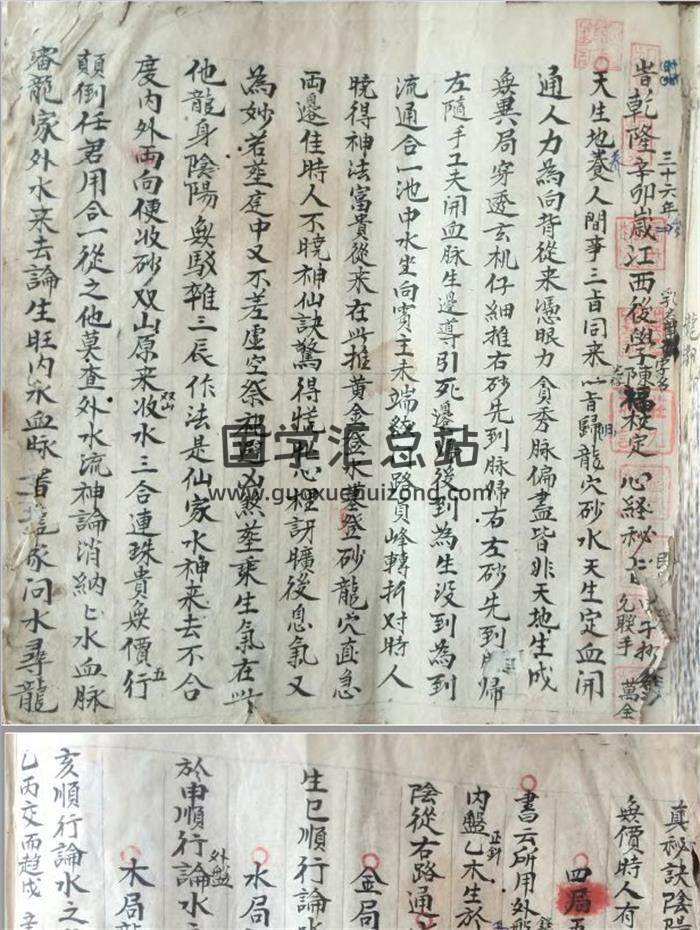 旹乾隆辛卯歲江西後學陳 定 心経秘
三十六年
天生地養人間事三旹同来 旹歸龍穴砂水天生定血開
通人力為向背從来憑眼力貪秀脉偏盡皆非天地生成
無異局穿透玄机仔細推右砂先到脉歸右左砂先到 歸
左隨手工夫開血脉生邊導引死邊 後到為生没到為到
流通合一池中水坐向賓主未端 路貝峰轉折对時人
曉得神法富貴從来在此推黄金 水 登砂龍穴直急
両邊佳時人不曉神仙訣驚得 心裡訝曠後息氣又
為妙若塟庭中又不差虚空祭 凶煞塟乘生氣在此
他龍身陰陽無駁雜三辰作法是仙家水神来去不合
度内外両向便收砂双山原来收水三合連珠貴無價五行
双山
顛倒任君用合一從之他莫查外水流神論消納匕水血脉
審龍家外水来去論生旺内水血脉 家问水尋龍
免聡手
萬全
国学汇总站
www.guoxuehuizong.com
真秘訣陰陽
無價時人有
四局五
書云所用外盤
正針
内盤乙木生於
陰從右路通
金局
生巳順行論水
水局
外盤
於申順行論水
木局龍
亥順行論水之
乙丙交而趋戍